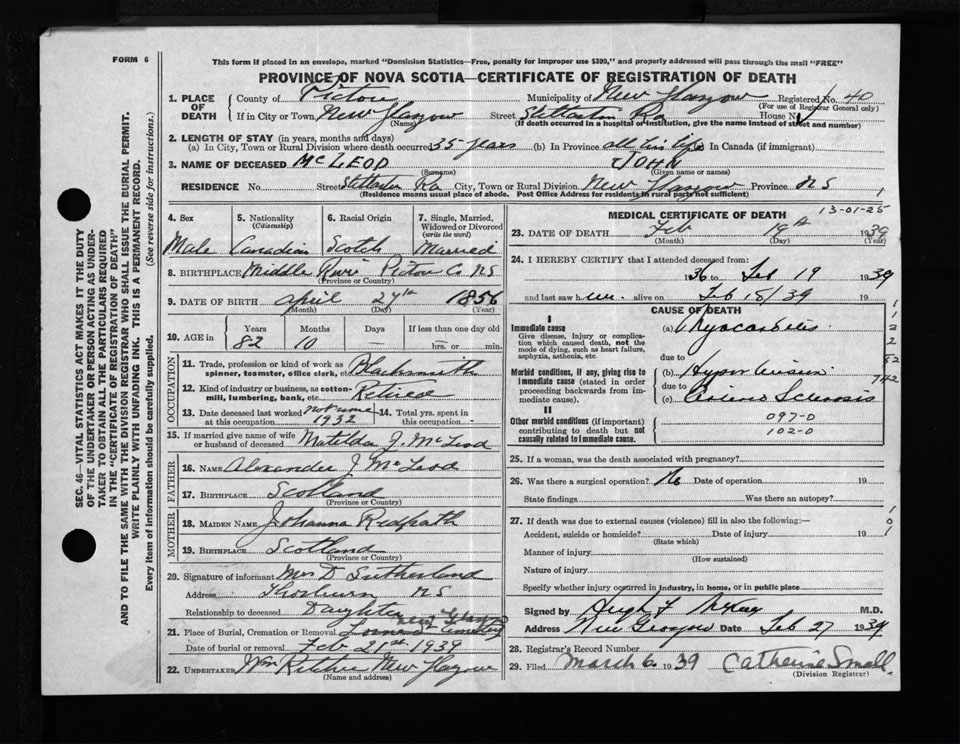 FORM 6
This form if placed in an envelope, marked "Dominion Statistics—Free, penalty for improper use $300," and properly addressed will pass through the mail "FREE"
PROVINCE OF NOVA SCOTIA—CERTIFICATE OF REGISTRATION OF DEATH
1. PLACE OF DEATH
County of Pictou Municipality of New Glasgow Registered No. 40
(For use of Registrar General only)
If in City or Town New Glasgow Street Stellarton Rd House No
(Name) (If death occurred in a hospital or institution, give the name instead of street and number)
2. LENGTH OF STAY (in years, months and days)
(a) In City, Town or Rural Division where death occurred 55 years (b) In Province all his life (c) In Canada (if immigrant)
3. NAME OF DECEASED McLEOD JOHN
(Surname) (Given name or names)
RESIDENCE No. Street Stellarton Rd City, Town or Rural Division New Glasgow Province NS
(Residence means usual place of abode. Post Office Address for residents in rural parts not sufficient)
1
4. Sex
Male
5. Nationality (Citizenship)
Canadian
6. Racial Origin
Scotch
7. Single, Married, Widowed or Divorced (write the word)
Married
8. BIRTHPLACE Middle River Pictou Co NS
(Province or Country)
9. DATE OF BIRTH April 27th 1856
(Month) (Day) (Year)
10. AGE in
Years Months Days If less than one day old
82 10 — hrs. or min.
OCCUPATION
11. Trade, profession or kind of work as spinner, teamster, office clerk, etc. Blacksmith
12. Kind of industry or business, as cotton-mill, lumbering, bank, etc. Retired
13. Date deceased last worked at this occupation 1932
14. Total yrs. spent in this occupation
15. If married give name of wife or husband of deceased Matilda J. McLeod
FATHER
16. NAME Alexander J McLeod
17. BIRTHPLACE Scotland
(Province or Country)
MOTHER
18. MAIDEN NAME Johanna Redpath
19. BIRTHPLACE Scotland
(Province or Country)
20. Signature of informant Mrs D. Sutherland
Address Thorburn NS
Relationship to deceased Daughter
21. Place of Burial, Cremation or Removal Cemetery
Date of burial or removal Feb 21st 1939
22. UNDERTAKER Wm Ritchie New Glasgow
(Name and address)
MEDICAL CERTIFICATE OF DEATH
13-01-25
23. DATE OF DEATH Feb 19th 1939
(Month) (Day) (Year)
24. I HEREBY CERTIFY that I attended deceased from:
1936 to Feb 19 1939
and last saw him alive on Feb 18/39 19
CAUSE OF DEATH
I
Immediate cause
Give disease, injury or complication which caused death, not the mode of dying, such as heart failure, asphyxia, asthenia, etc.
(a) Myocarditis
due to
Morbid conditions, if any, giving rise to immediate cause (stated in order proceeding backwards from immediate cause).
(b) Hypertension
due to
(c) Sclerosis
II
Other morbid conditions (if important) contributing to death but not causally related to immediate cause.
097-0
102-0
25. If a woman, was the death associated with pregnancy?
26. Was there a surgical operation? No Date of operation 19
State findings Was there an autopsy?
27. If death was due to external causes (violence) fill in also the following:—
Accident, suicide or homicide? Date of injury 19
(State which)
Manner of injury
(How sustained)
Nature of injury
Specify whether injury occurred in industry, in home, or in public place
Signed by Hugh F. McKay M.D.
Address New Glasgow Date Feb 27 1939
28. Registrar's Record Number
29. Filed March 6 1939 Catherine Small
(Division Registrar)
SEC. 46—VITAL STATISTICS ACT MAKES IT THE DUTY
OF THE UNDERTAKER OR PERSON ACTING AS UNDER-
TAKER TO OBTAIN ALL THE PARTICULARS REQUIRED
IN THE "CERTIFICATE OF REGISTRATION OF DEATH"
AND TO FILE THE SAME WITH THE DIVISION REGISTRAR WHO SHALL ISSUE THE BURIAL PERMIT.
WRITE PLAINLY WITH UNFADING INK. THIS IS A PERMANENT RECORD.
Every item of information should be carefully supplied. (See reverse side for instructions.)